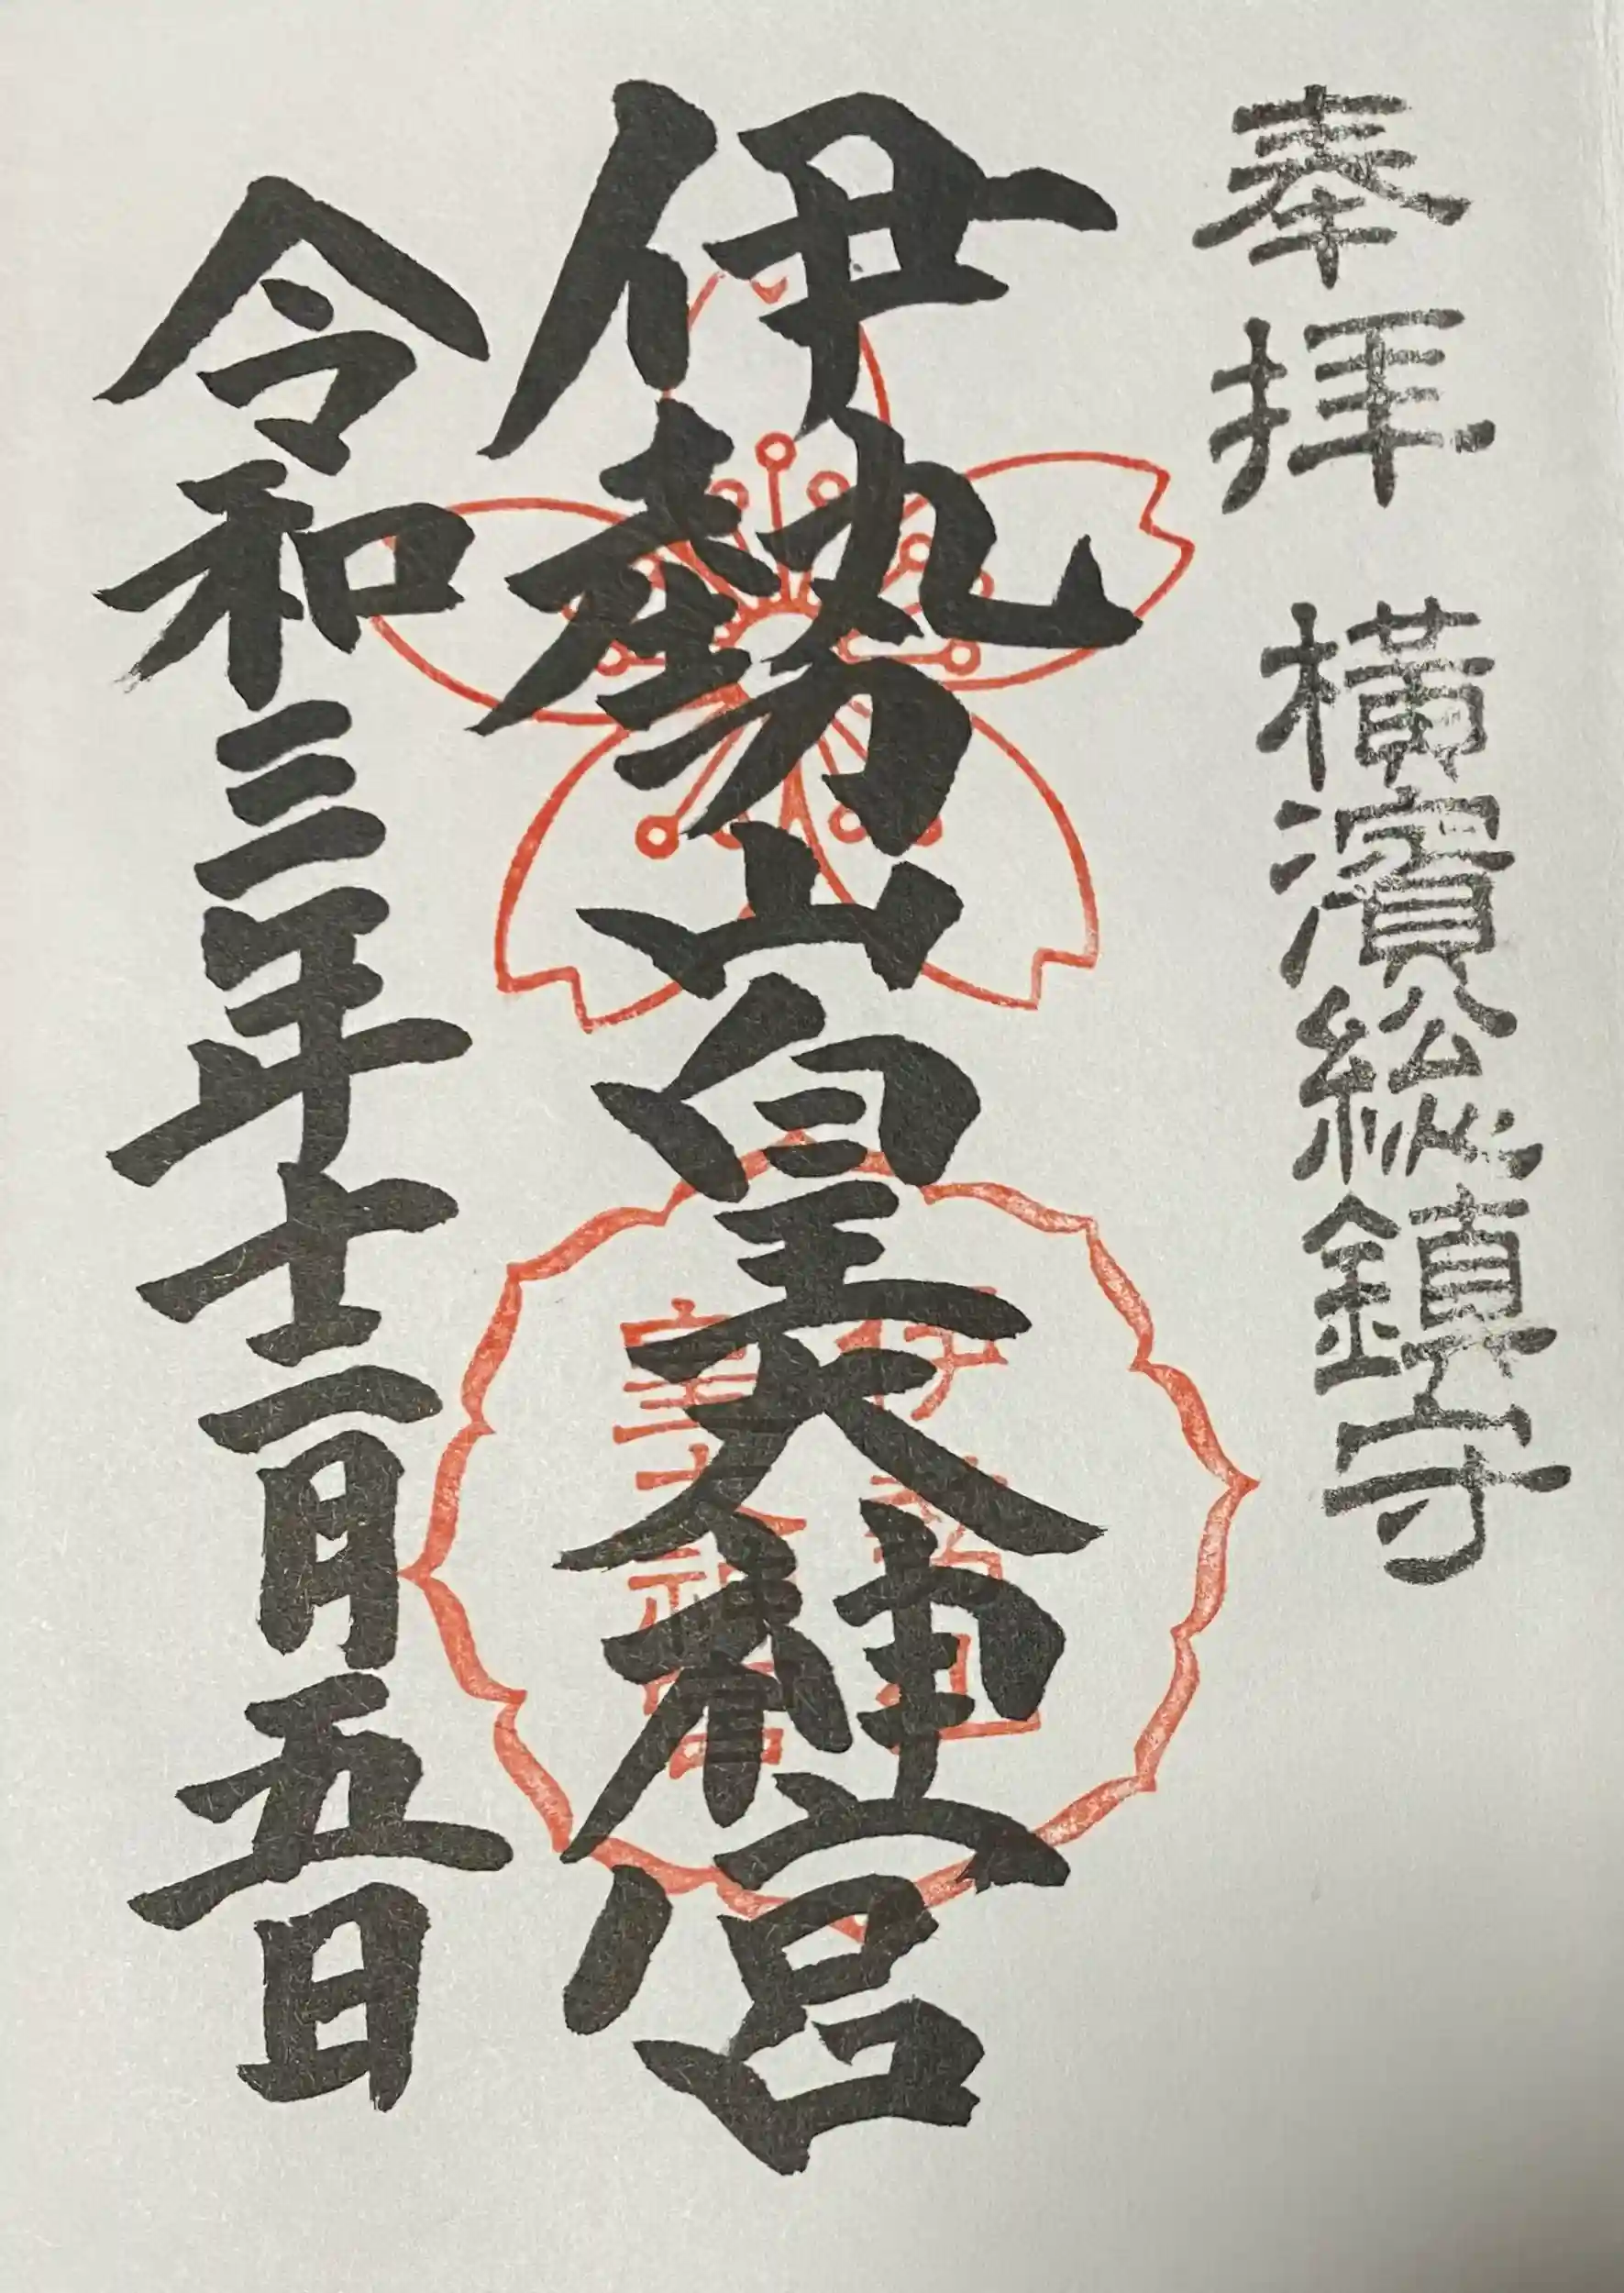 奉拝 横濱総鎮守
伊勢山皇大神宮
伊勢山
皇大神宮
令和三年十二月五日